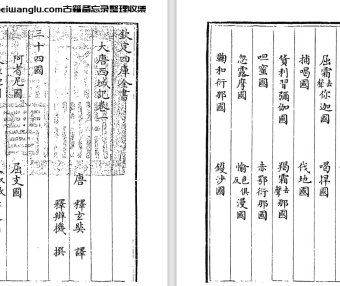 eiuwanglu.com古籍备忘录整理收集
欽定四庫全書
大唐西域記卷一
唐 釋玄奘 譯
釋辯機 撰
三十四國
阿耆尼國 屈支國
屈霜去聲你迦國 喝捍國
捕喝國 伐地國
貨利習彌伽國 羯霜去聲那國
呾蜜國 赤鄂衍那國
忽露摩國 愉色俱反漫國
鞠和衍那國 鑊沙國